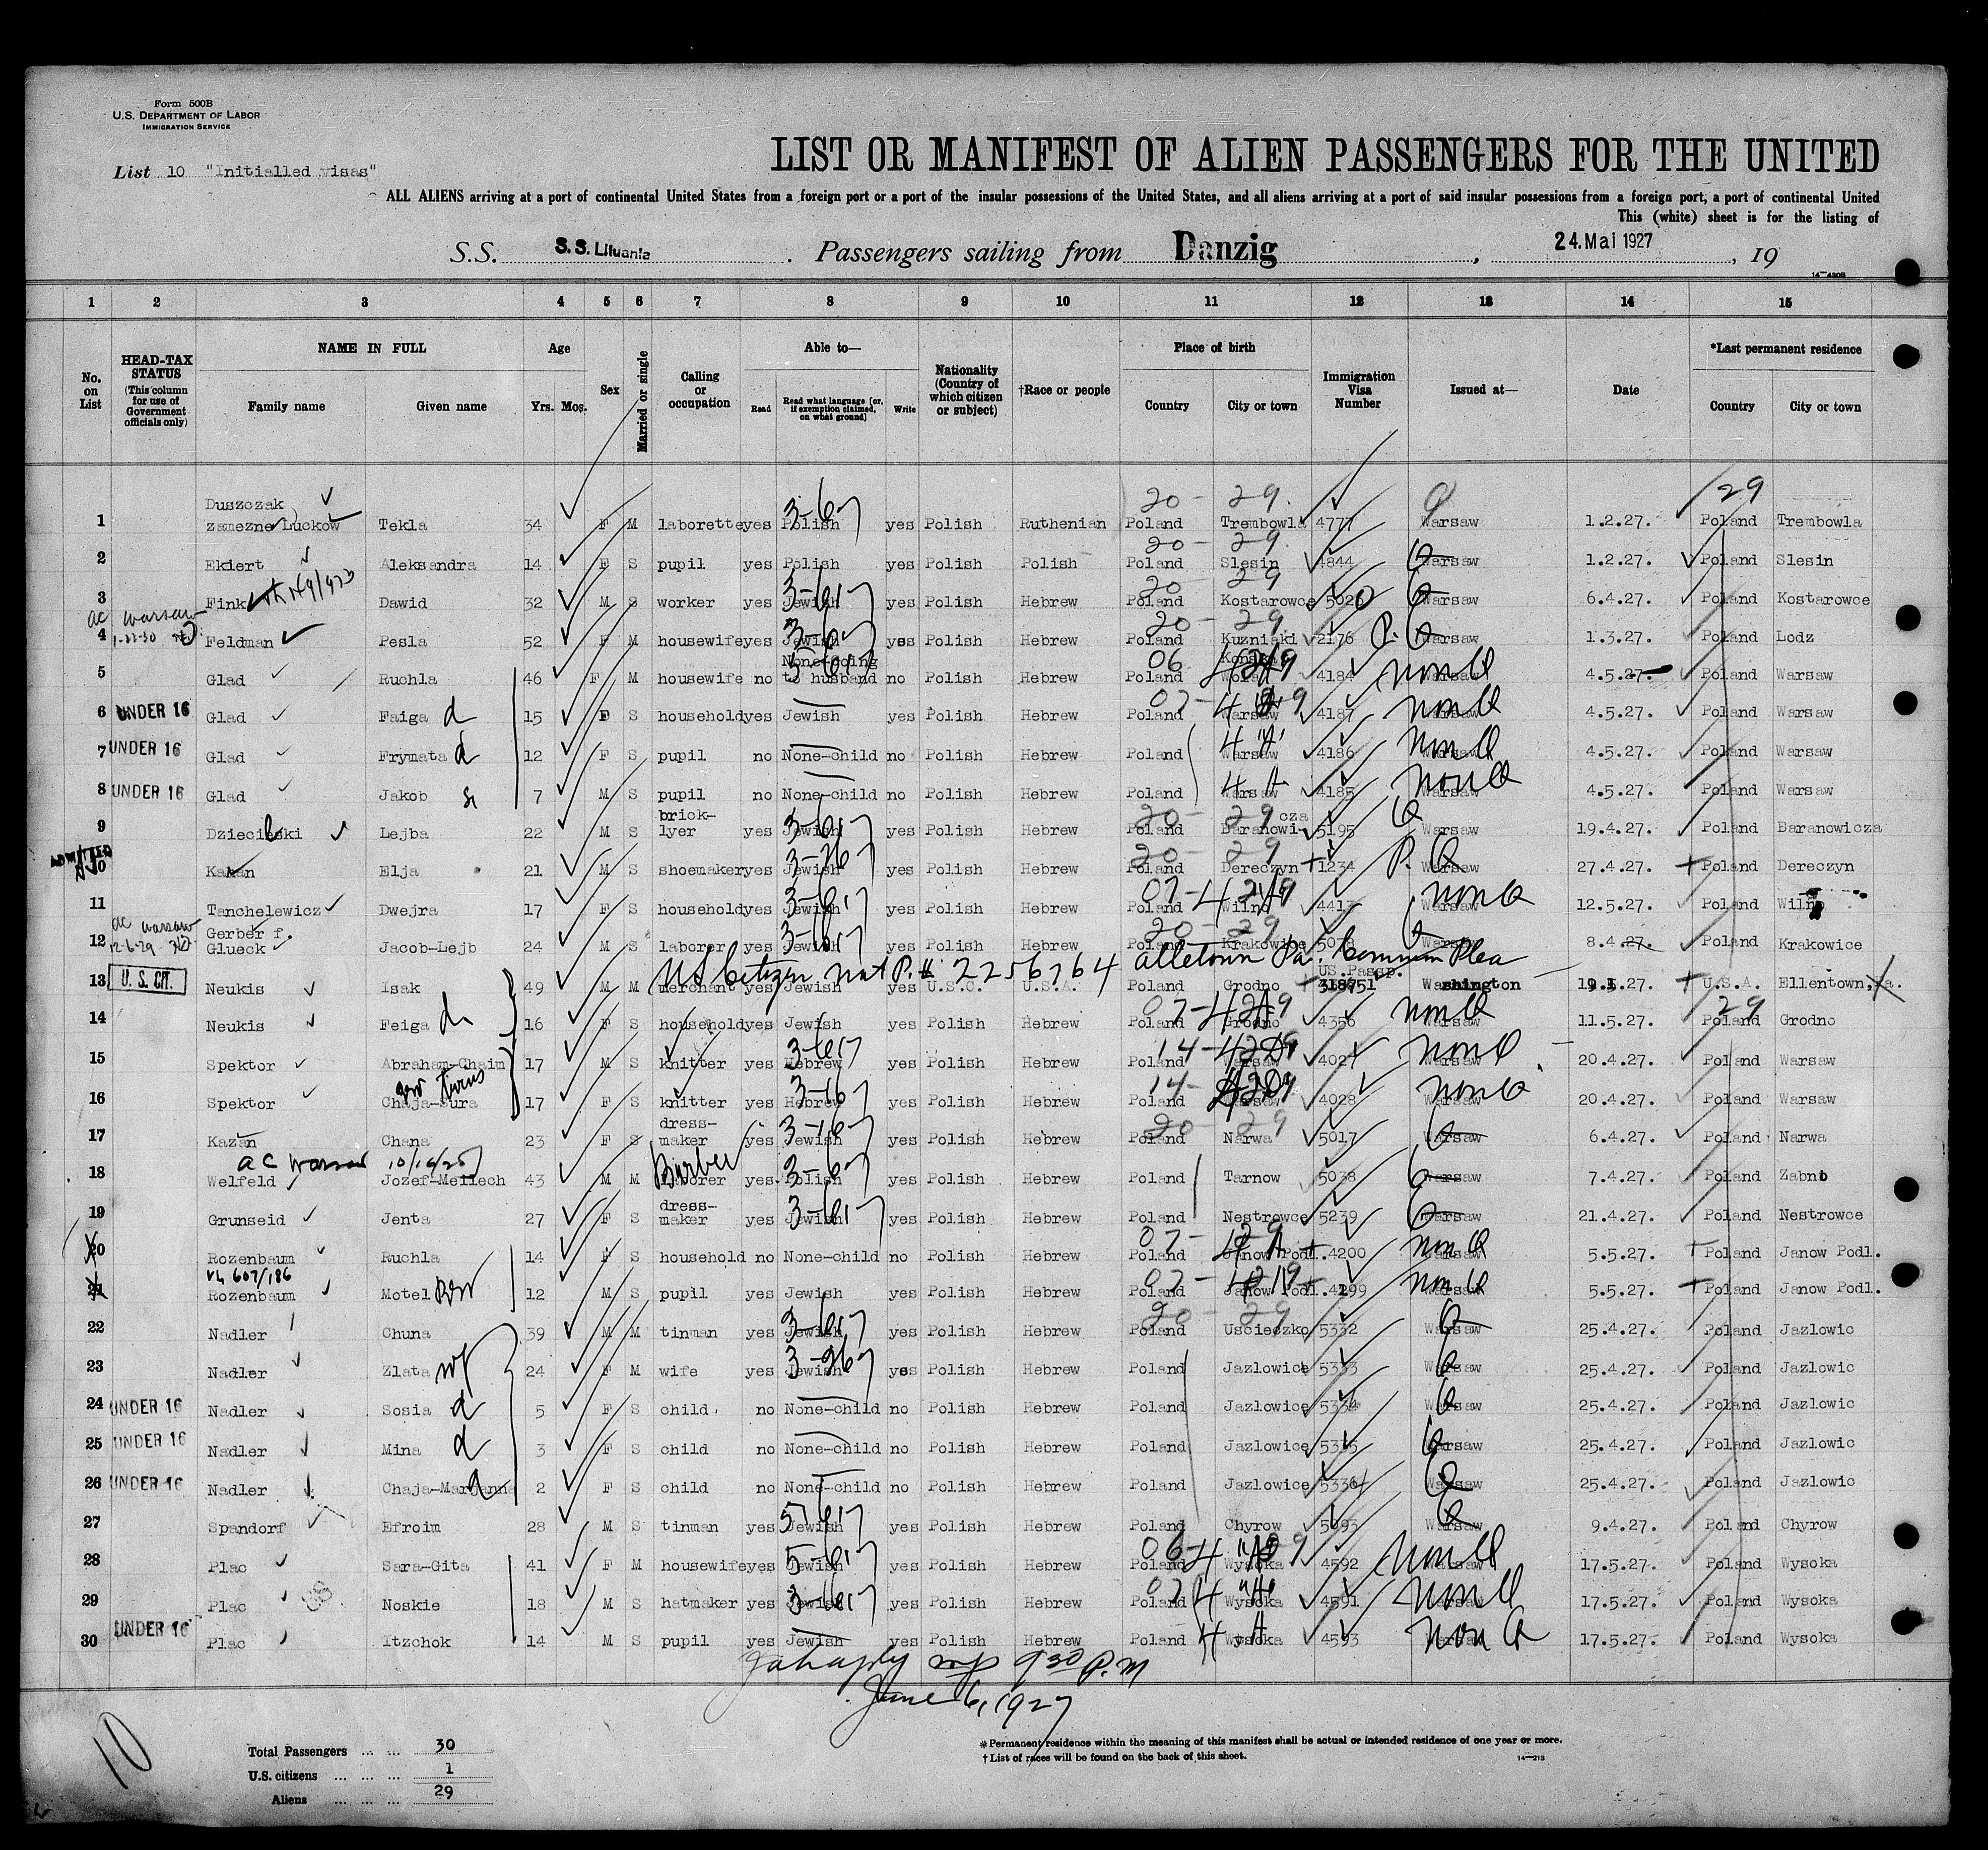 Form 500B
U.S. DEPARTMENT OF LABOR
IMMIGRATION SERVICE
LIST OR MANIFEST OF ALIEN PASSENGERS FOR THE UNITED
List 10 "Initialled visas"
ALL ALIENS arriving at a port of continental United States from a foreign port or a port of the insular possessions of the United States, and all aliens arriving at a port of said insular possessions from a foreign port, a port of continental United
This (white) sheet is for the listing of
S.S. S.S. Lituania . Passengers sailing from Danzig , 24. Mai 1927 , 19
14-430B
1 2 3 4 5 6 7 8 9 10 11 12 13 14 15
No. on List HEAD-TAX STATUS (This column for use of Government officials only) NAME IN FULL Family name Given name Age Yrs. Mos. Sex Married or single Calling or occupation Able to— Read Read what language [or, if exemption claimed, on what ground] Write Nationality (Country of which citizen or subject) †Race or people Place of birth Country City or town Immigration Visa Number Issued at— Date *Last permanent residence Country City or town
Duszczak 3-6-7 20 - 29. 29
1 zamezne Luckow Tekla 34 F M laborette yes Polish yes Polish Ruthenian Poland Trembowla 4777 Warsaw 1.2.27. Poland Trembowla
20 - 29
2 Ekiert Aleksandra 14 F S pupil yes Polish yes Polish Polish Poland Slesin 4844 Warsaw 1.2.27. Poland Slesin
20 29
3 Fink Dawid 32 M S worker yes Jewish yes Polish Hebrew Poland Kostarowce 5026 Warsaw 6.4.27. Poland Kostarowce
ac Warsaw 20 - 29
4 1-22-30 Feldman Pesla 52 F M housewife yes Jewish yes Polish Hebrew Poland Kuzniaki 2176 P. Warsaw 1.3.27. Poland Lodz
None-going 06
5 Glad Ruchla 46 F M housewife no to husband no Polish Hebrew Poland 4184 Warsaw 4.5.27. Poland Warsaw
6 UNDER 16 Glad Faiga d 15 F S household yes Jewish yes Polish Hebrew Poland Warsaw 4187 Warsaw 4.5.27. Poland Warsaw
7 UNDER 16 Glad Frymata d 12 F S pupil no None-child no Polish Hebrew Poland Warsaw 4186 Warsaw 4.5.27. Poland Warsaw
8 UNDER 16 Glad Jakob 7 M S pupil no None-child no Polish Hebrew Poland Warsaw 4185 Warsaw 4.5.27. Poland Warsaw
brick- 20 - 29 cza
9 Lejba 22 M S lyer yes Jewish yes Polish Hebrew Poland Baranowi- 5195 Warsaw 19.4.27. Poland Baranowicza
ADMITTED 20 - 29
10 Elja 21 M S shoemaker yes Jewish yes Polish Hebrew Poland Dereczyn 1234 P. Warsaw 27.4.27. Poland Dereczyn
11 Tanchelewicz Dwejra 17 F S household yes Jewish yes Polish Hebrew Poland Wilno 4417 Warsaw 12.5.27. Poland Wilno
ac Warsaw Gerber f. 20 29
12 12-6-29 Glueck Jacob-Lejb 24 M S laborer yes Jewish yes Polish Hebrew Poland Krakowice 5078 Warsaw 8.4.27. Poland Krakowice
US Citizen. Nat P. # 2256764 Alletown Pa. Common Plea
US Passp.
13 U. S. CIT. Neukis Isak 49 M M merchant yes Jewish yes U.S.C. U.S.A. Poland Grodno 318751 Washington Poland U.S.A. Ellentown, Pa.
07 29
14 Neukis Feiga d 16 F S household yes Jewish yes Polish Hebrew Poland Grodno 4356 Warsaw 11.5.27. Poland Grodno
15 Spektor Abraham-Chaim 17 M S knitter yes Hebrew yes Polish Hebrew Poland Warsaw 4027 Warsaw 20.4.27. Poland Warsaw
twins
16 Spektor Chaja-Sura 17 F S knitter yes Hebrew yes Polish Hebrew Poland Warsaw 4028 Warsaw 20.4.27. Poland Warsaw
dress- 20 - 29
17 Kazan Chana 23 F S maker yes Jewish yes Polish Hebrew Poland Narwa 5017 Warsaw 6.4.27. Poland Narwa
ac Warsaw Barber
18 Welfeld Jozef-Meilech 43 M M laborer yes Polish yes Polish Hebrew Poland Tarnow 5038 Warsaw 7.4.27. Poland Zabno
dress-
19 Grunseid Jenta 27 F S maker yes Jewish yes Polish Hebrew Poland Nestrowce 5239 Warsaw 21.4.27. Poland Nestrowce
07 - 29
20 Rozenbaum Ruchla 14 F S household no None-child no Polish Hebrew Poland Janow Podl. 4200 Warsaw 5.5.27. Poland Janow Podl.
607/186
21 Rozenbaum Motel 12 M S pupil yes Jewish yes Polish Hebrew Poland Janow Podl. 4199 Warsaw 5.5.27. Poland Janow Podl.
20 - 29
22 Nadler Chuna 39 M M tinman yes Jewish yes Polish Hebrew Poland Uscieczko 5332 Warsaw 25.4.27. Poland Jazlowic
23 Nadler Zlata wf 24 F M wife yes Jewish yes Polish Hebrew Poland Jazlowice 5333 Warsaw 25.4.27. Poland Jazlowic
24 UNDER 16 Nadler Sosia d 5 F S child no None-child no Polish Hebrew Poland Jazlowice 5334 Warsaw 25.4.27. Poland Jazlowic
25 UNDER 16 Nadler Mina d 3 F S child no None-child no Polish Hebrew Poland Jazlowice 5335 Warsaw 25.4.27. Poland Jazlowic
26 UNDER 16 Nadler Chaja-Marjanna d 2 F S child no None-child no Polish Hebrew Poland Jazlowice 5336 Warsaw 25.4.27. Poland Jazlowic
27 Spandorf Efroim 28 M S tinman yes Jewish yes Polish Hebrew Poland Chyrow 5093 Warsaw 9.4.27. Poland Chyrow
28 Plac Sara-Gita 41 F M housewife yes Jewish yes Polish Hebrew Poland Wysoka 4592 Warsaw 17.5.27. Poland Wysoka
29 Plac Noskie 18 M S hatmaker yes Jewish yes Polish Hebrew Poland Wysoka 4591 Warsaw 17.5.27. Poland Wysoka
30 UNDER 16 Plac Itzchok 14 M S pupil yes Jewish yes Polish Hebrew Poland Wysoka 4593 Warsaw 17.5.27. Poland Wysoka
9 30 P.M
June 6, 1927
10
Total Passengers ... ... 30
U.S. citizens ... ... ... 1
Aliens ... ... ... 29
*Permanent residence within the meaning of this manifest shall be actual or intended residence of one year or more.
†List of races will be found on the back of this sheet. 14-213